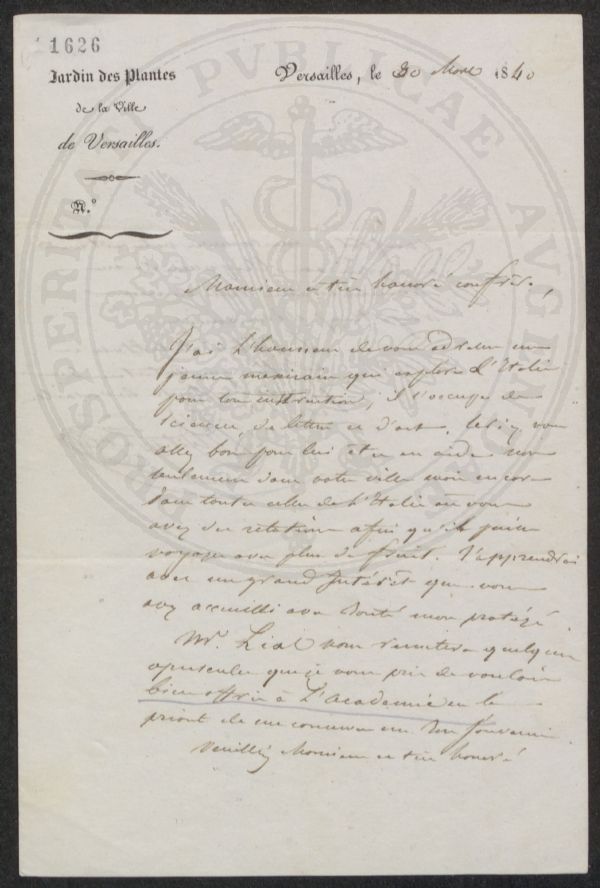 1626
Jardin des Plantes
de la Ville
de Versailles.
N.°
Versailles, le 30 1840
PROSPERITATI PVBLICAE AVGENDAE
Monsieur et très honoré confrère,
J'ai l'honneur de vous adresser un
jeune mexicain qui explore l'Italie
pour son instruction, il s'occupe de
sciences, de lettres et d'art.
bon pour lui et en aide non
seulement dans votre ville mais encore
dans toutes celles de l'Italie où vous
avez des relations afin qu'il puisse
voyager avec plus de fruit. J'apprendrai
avec un grand Intérêt que vous
avez accueilli avec bonté mon protégé.
Mr. vous remettra quelques
opuscules que je vous prie de vouloir
bien offrir à L'académie en la
priant de me conserver un bon souvenir
Veuillez Monsieur et très honoré